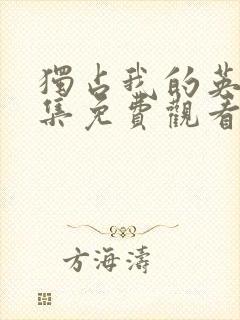 獨占我的英
集免費觀看
方海濤